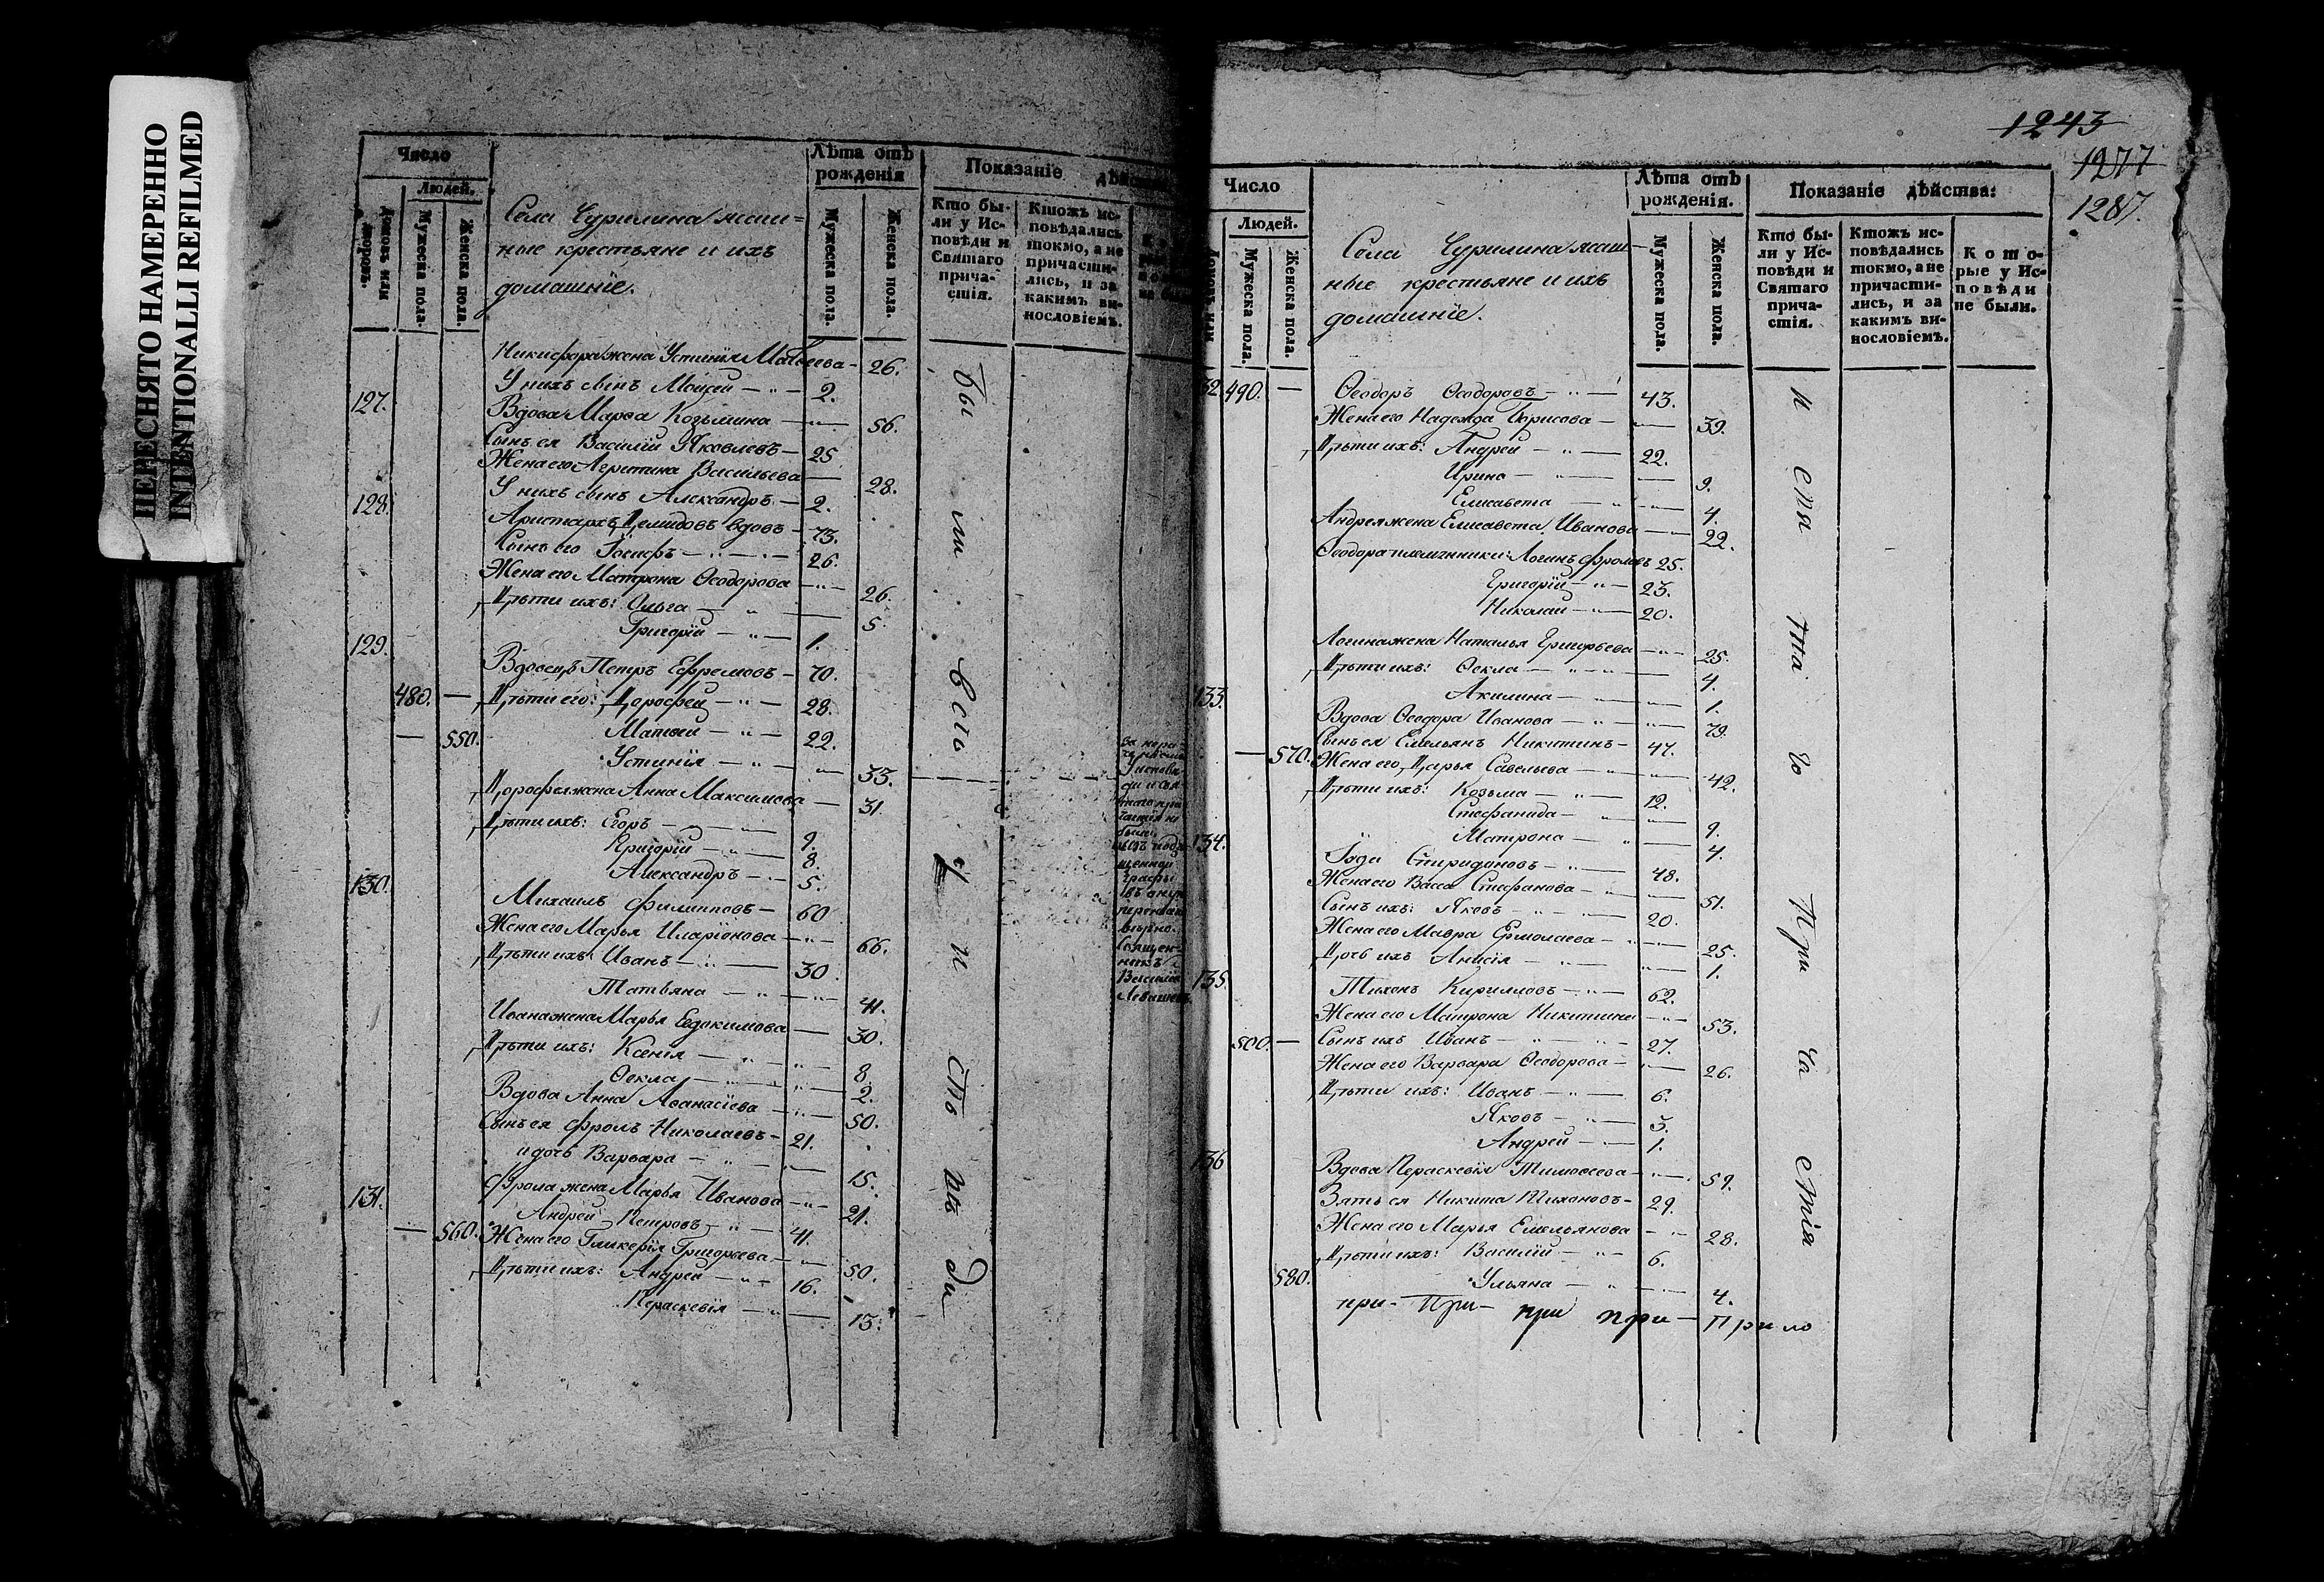 ПЕРЕСНЯТО НАМЕРЕННО
INTENTIONALLI REFILMED
Число
Людей.
Домовъ или дворовъ.
Мужеска пола.
Женска пола.
Села Чурилина яшаш=
ные крестьяне и ихъ
домашніе.
Лѣта отъ рожденія
Мужеска пола.
Женска пола.
Показаніе
Кто бы-
ли у Ис-
повѣди и
Святаго
прича-
стія.
Ктожъ ис-
повѣдались
токмо, а не
причасти-
лись, и за
какимъ ви-
нословіемъ.
Никифора жена Устинія Матѳеева - 26.
У нихъ сынъ Моисей - 2.
127. Вдова Марѳа Козьмина - 56.
Сынъ ея Василій Яковлевъ - 25
Жена его Васильева - 28.
У нихъ сынъ Александръ - 2.
128. Аристархъ Демидовъ вдовъ - 73.
Сынъ его Іосифъ - 26.
Жена его Матрона Ѳеодорова - 26.
Дѣти ихъ: Ольга - 5.
Григорій - 1.
129. Вдовецъ Петръ Ефремовъ - 70.
480. - Дѣти его: Дороѳей - 28.
- 550. Матѳей - 22.
Устинія - 33.
Дороѳея жена Анна Максимова - 31.
Дѣти ихъ: Егоръ - 9.
Григорій - 8.
Александръ - 5.
130. Михаилъ Филипповъ - 60
Жена его Марья Иларіонова - 66.
Дѣти ихъ: Иванъ - 30
Татьяна - 41.
Ивана жена Марья Евдокимова - 30.
Дѣти ихъ: Ксенія - 8
Ѳекла - 2.
Вдова Анна Аѳанасіева - 50.
Сынъ ея Фролъ Николаевъ - 21.
и дочь Варвара - 15.
Фрола жена Марья Иванова - 21.
131. Андрей Петровъ - 41.
- 560. Жена его Гликерія Григорьева - 50.
Дѣти ихъ: Андрей - 16.
Параскевія - 13.
бы ли всѣ у и спо вѣ ди
Священ-
никъ
Василій
1243
1277
1287.
Число
Людей.
Мужеска пола.
Женска пола.
Села Чурилина яшаш-
ные крестьяне и ихъ
домашніе.
Лѣта отъ рожденія.
Мужеска пола.
Женска пола.
Показаніе дѣйства:
Кто бы-
ли у Ис-
повѣди и
Святаго
прича-
стія.
Ктожъ ис-
повѣдались
токмо, а не
причасти-
лись, и за
какимъ ви-
нословіемъ.
К о т о-
рые у Ис-
повѣди
не были.
32. 490. - Ѳеодоръ Ѳеодоровъ - 43.
Жена его Надежда Борисова - 39.
Дѣти ихъ: Андрей - 22.
Ирина - 9.
Елисавета - 4.
Андрея жена Елисавета Иванова - 22.
Ѳеодора племянники: Логинъ Фроловъ 25.
Григорій - 23.
Николай - 20.
Логина жена Наталья Григорьева - 25.
Дѣти ихъ: Ѳекла - 4.
Акилина - 1.
133. Вдова Ѳеодора Иванова - 79.
Сынъ ея Емельянъ Никитинъ - 47.
- 570. Жена его Дарья Савельева - 42.
Дѣти ихъ: Козьма - 12.
Стефанида - 9.
Матрона - 4.
134. Спиридоновъ - 48.
Жена его Васса Стефанова - 51.
Сынъ ихъ: Яковъ - 20.
Жена его Мавра Ермолаева - 25.
Дочь ихъ Анисія - 1.
135. Тихонъ Кирилловъ - 62.
Жена его Матрона Никитина - 53.
500. - Сынъ ихъ Иванъ - 27.
Жена его Варвара Ѳеодорова - 26.
Дѣти ихъ: Иванъ - 6.
Яковъ - 3.
Андрей - 1.
136 Вдова Параскевія Тимоѳеева - 59.
Зять ея Никита Тихоновъ - 29.
Жена его Марья Емельянова - 28.
Дѣти ихъ: Василій - 6.
580. Ульяна - 4.
при- При- при при- Прило
и свя та го при ча стія